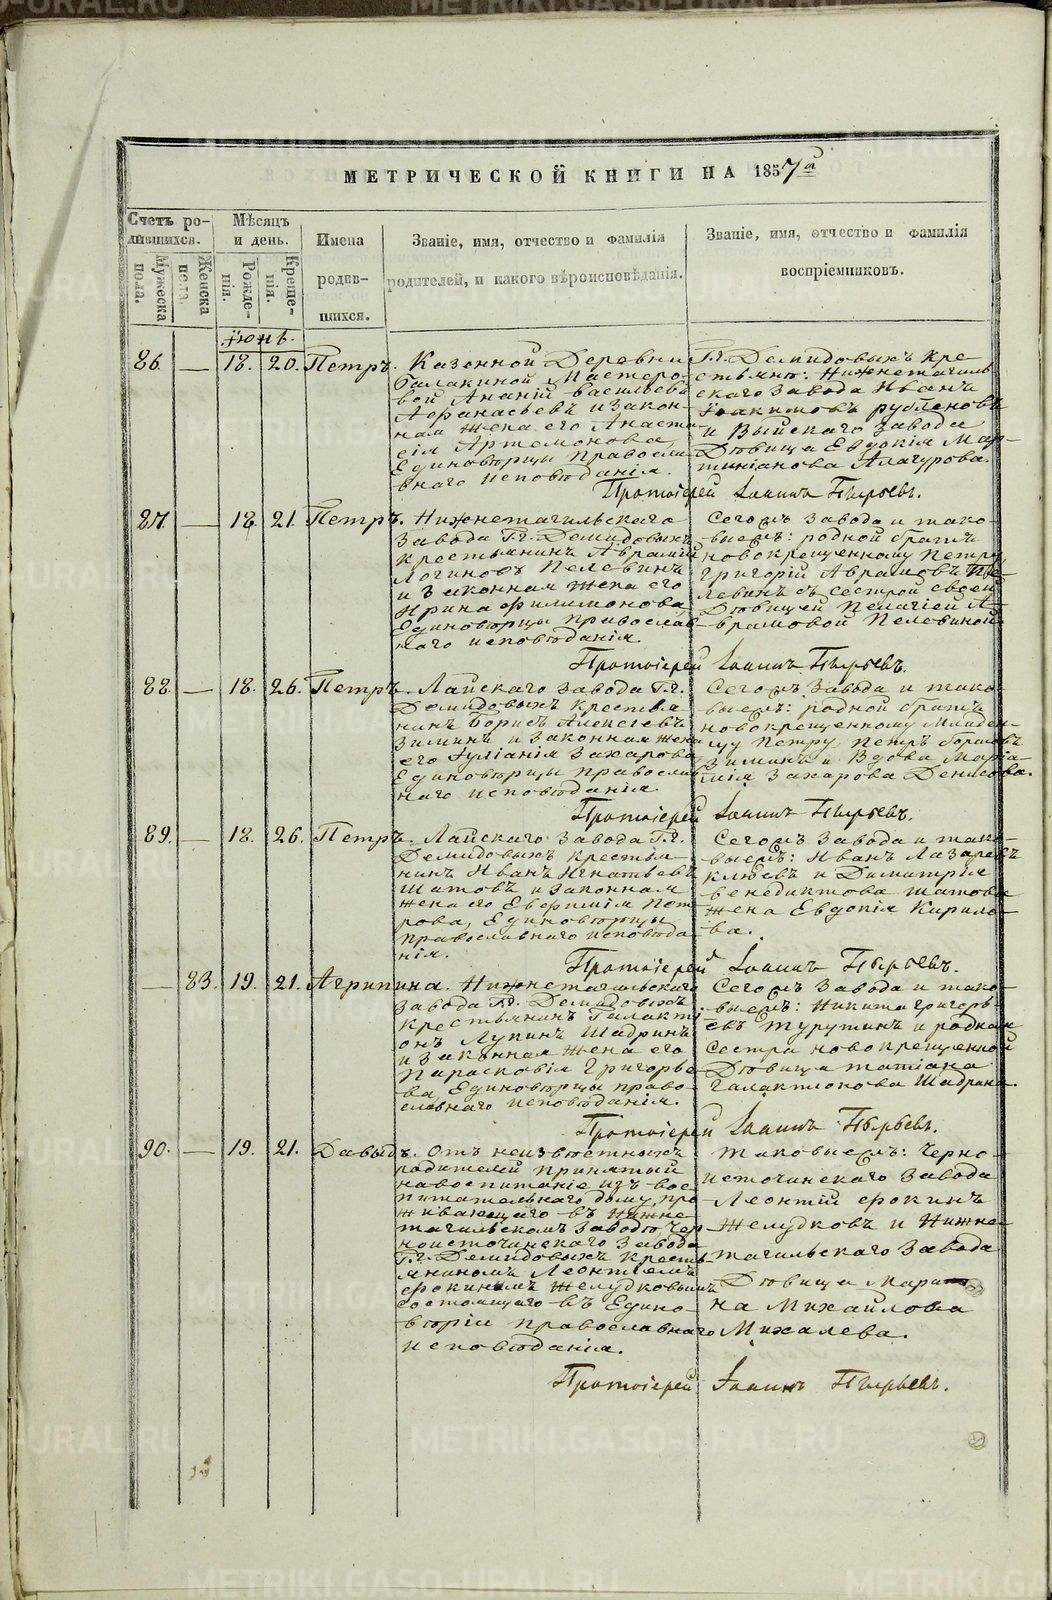 МЕТРИЧЕСКОЙ КНИГИ НА 1857 й
Счетъ ро-
дившихся.
Мужеска
пола.
Женска
пола.
Мѣсяцъ
и день.
Рожде-
нія.
Креще-
нія.
Имена
родив-
шихся.
Званіе, имя, отчество и фамилія
родителей, и какого вѣроисповѣданія.
Званіе, имя, отчество и фамилія
воспріемниковъ.
Іюнь.
86. — 18. 20. Петръ.
Казенной Деревни
Балакиной Мастеро-
вой Ананій Васильевъ
Афанасьевъ и закон-
ная жена его Анаста-
сія Артемонова,
Единовѣрцы правосла-
внаго исповѣданія.
Гг. Демидовыхъ кре-
стьяне: Нижнетагиль-
скаго завода Иванъ
Іоакимовъ Рублевовъ
и Выйскаго завода
Дѣвица Евдокія Мар-
тиніанова Алагурова.
Протоіерей Іоаннъ Пырьевъ.
87. — 18. 21. Петръ.
Нижнетагильскаго
завода Гг. Демидовыхъ
крестьянинъ Аврамій
Логиновъ Пелевинъ
и законная жена его
Ирина Филимонова,
Единовѣрцы православ-
наго исповѣданія.
Сегожъ завода и тако-
выежъ: родной братъ
новокрещенному Петру,
Григорій Аврамовъ Пе-
левинъ съ сестрой своей
Дѣвицей Пелагіей А-
врамовой Пелевиной.
Протоіерей Іоаннъ Пырьевъ.
88. — 18. 26. Петръ.
Лайскаго завода Гг.
Демидовыхъ крестья-
нинъ Борисъ Алексѣевъ
Зиминъ и законная жена
его Іуліанія Захарова
Единовѣрцы православ-
наго исповѣданія.
Сегожъ завода и тако-
выежъ: родной братъ
новокрещенному Младен-
цу Петру, Петръ Борисовъ
Зиминъ и Вдова Маріа-
мія Захарова Денисова.
Протоіерей Іоаннъ Пырьевъ.
89. — 18. 26. Петръ.
Лайскаго завода Гг.
Демидовыхъ крестья-
нинъ Иванъ Игнатьевъ
Шатовъ и законная
жена его Евфимія Пет-
рова, Единовѣрцы
православнаго исповѣда-
нія.
Сегожъ завода и тако-
выежъ: Иванъ Лазаревъ
Клюевъ и Димитрія
Венедиктова Шатова
жена Евдокія Кирило-
ва.
Протоіерей Іоаннъ Пырьевъ.
— 83. 19. 21. Агрипина.
Нижнетагильскаго
завода Гг. Демидовыхъ
крестьянинъ Галакті-
онъ Лупинъ Шадринъ
и законная жена его
Парасковія Григорье-
ва, Единовѣрцы право-
славнаго исповѣданія.
Сегожъ завода и тако-
выежъ: Никита Григорь-
евъ Турутинъ и родная
сестра новокрещенной
Дѣвица Татіана
Галактіонова Шадрина.
Протоіерей Іоаннъ Пырьевъ.
90. — 19. 21. Давыдъ.
Отъ неизвѣстныхъ
родителей принятый
на воспитаніе изъ вос-
питательнаго дому, про-
живающаго въ Нижне-
тагильскомъ заводѣ Чер-
ноисточинскаго завода
Гг. Демидовыхъ кресть-
яниномъ Леонтіемъ
Фокинымъ Желудковымъ
состоящаго въ Едино-
вѣріи православнаго
исповѣданія.
таковыежъ: Черно-
источинскаго завода
Леонтій Фокинъ
Желудковъ и Нижне-
тагильскаго завода
Дѣвица Мари-
на Михайлова
Михалева.
Протоіерей Іоаннъ Пырьевъ.
METRIKI.GASO-URAL.RU